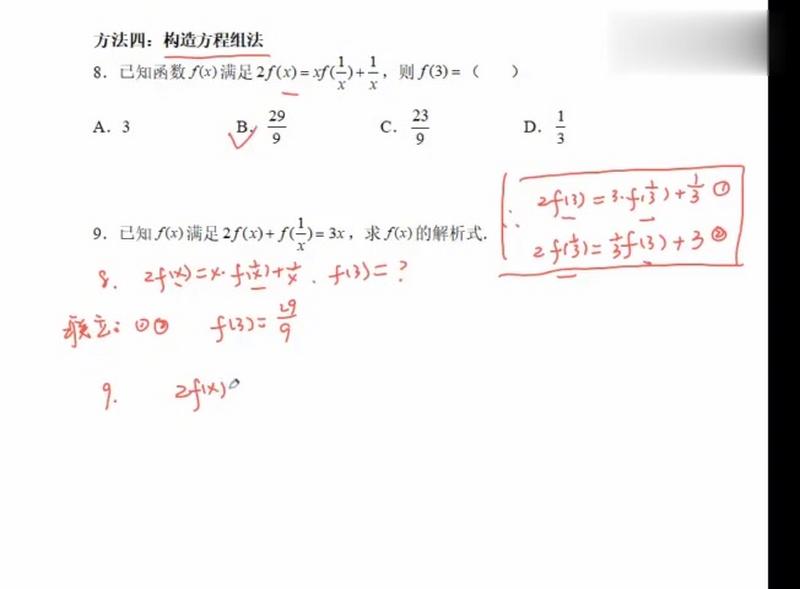 方法四：构造方程组法
8．已知函数 f(x) 满足 2f(x)=xf(1/x)+1/x，则 f(3)=（  ）
A．3  B．29/9  C．23/9  D．1/3
9．已知 f(x) 满足 2f(x)+f(1/x)=3x，求 f(x) 的解析式．
∴ 2f(3)=3·f(1/3)+1/3 ①
2f(1/3)=1/3f(3)+3 ②
8. 2f(x)=x·f(1/x)+1/x . f(3)=?
联立：①② f(3)=29/9
9. 2f(x)